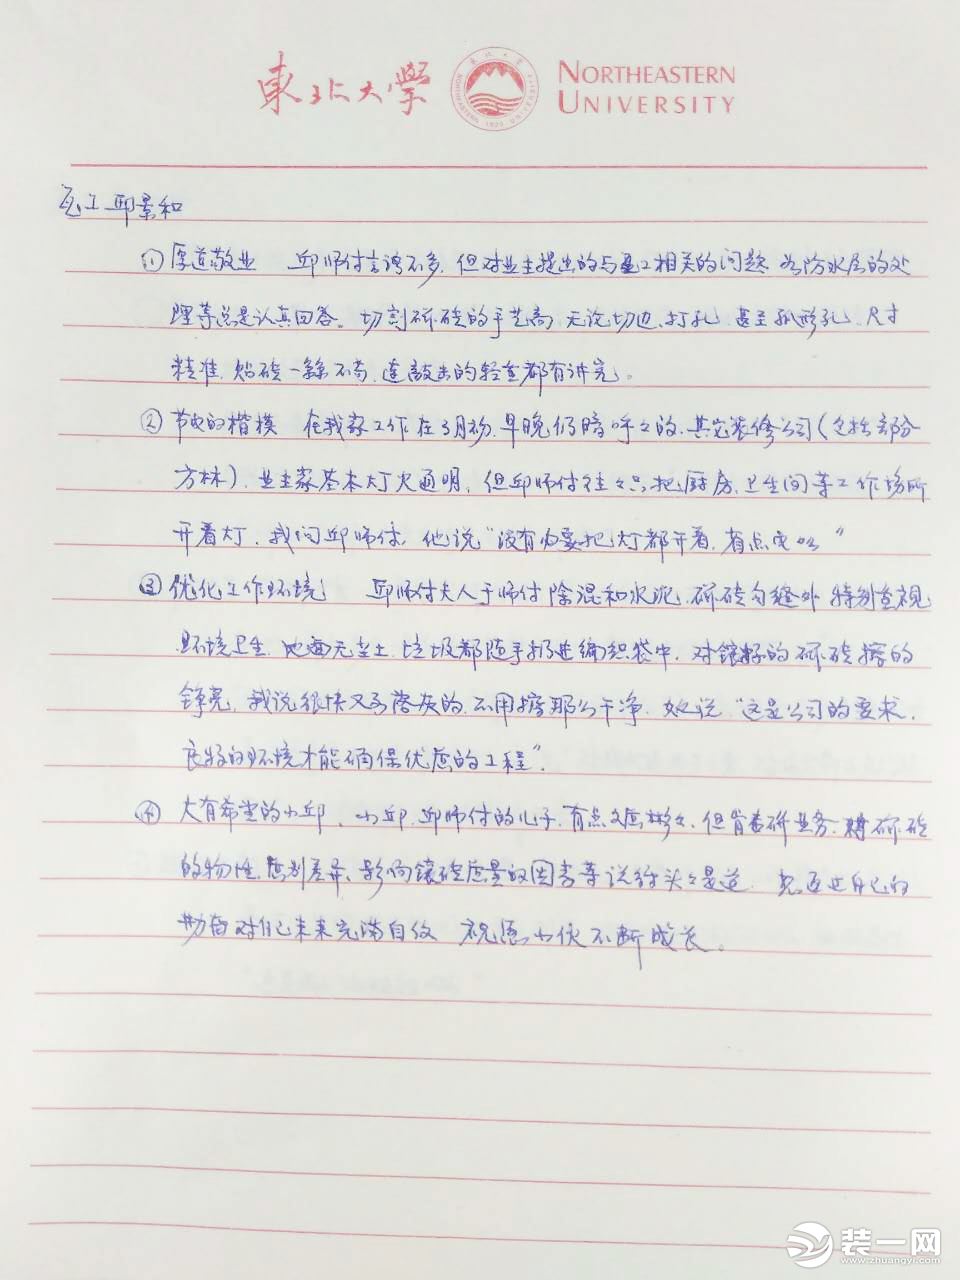 東北大學 NORTHEASTERN UNIVERSITY
瓦工邱景和
① 厚道敬业 邱师付言语不多,但对业主提出的与瓦工相关的问题,如防水层的处
理等总是认真回答。切割砖瓷的手艺高,无论切边、打孔、甚至弧形孔,尺寸
精准,贴砖一丝不苟,连敲击的轻重都有讲究。
② 节电的楷模 在我家工作在3月份,早晚仍暗呼々的,其它装修公司(包括部分
方林),业主家基本灯火通明,但邱师付往々只把厨房、卫生间等工作场所
开着灯,我问邱师付,他说“没有必要把灯都开着,省点电以”
③ 优化工作环境 邱师付夫人于师付除混和水泥、砖瓷勾缝外,特别重视
环境卫生,地面无尘土,垃圾都随手扔进编织袋中,对镶好的砖瓷擦的
铮亮,我说很快又落灰的,不用擦那么干净,她说,“这是公司的要求,
良好的环境才能确保优质的工程”。
④ 大有希望的小邱,小邱,邱师付的儿子,有点文质彬々,但肯钻研业务,对砖瓷
的物性、质别差异、影响镶砖质量的因素等说得头々是道,通过自己的
勤奋对自己未来充满自信,祝愿小伙不断成长。
装一网
www.zhuangyi.com